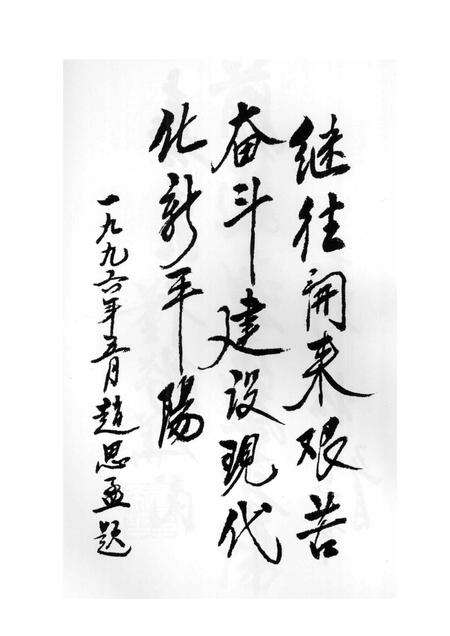 继往開来艰苦
奋斗建设現代
化新平陽
一九九六年五月趙思孟題